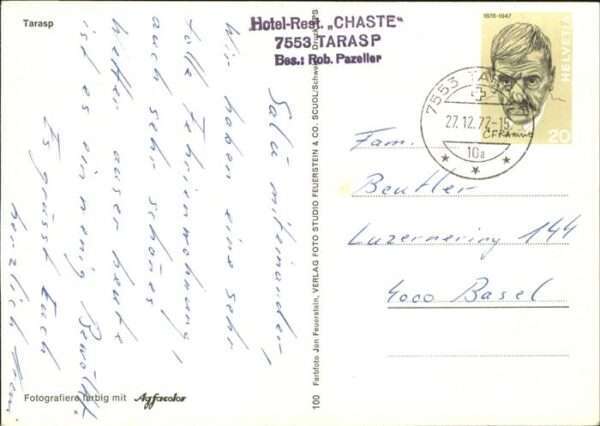 Tarasp
Hotel-Rest. „CHASTE"
7553 TARASP
Bes.: Rob. Pazeller
1878-1947
HELVETIA
20
C.F. Ramuz
7553 TARASP
27.12.72-15
10a
Fam.
Beutler
Luzernerring 144
4000 Basel
Salü mitenander,
Wir haben eine sehr
tolle Ferienwohnung,
auch sehr schönes
Wetter, ausser heute
ist es ein wenig Bewölkt.
Es grüsst Euch
herzlich
Fotografiere farbig mit Agfacolor
100 Farbfoto Jon Feuerstein, VERLAG FOTO STUDIO FEUERSTEIN & CO. SCUOL/Schweiz Druck